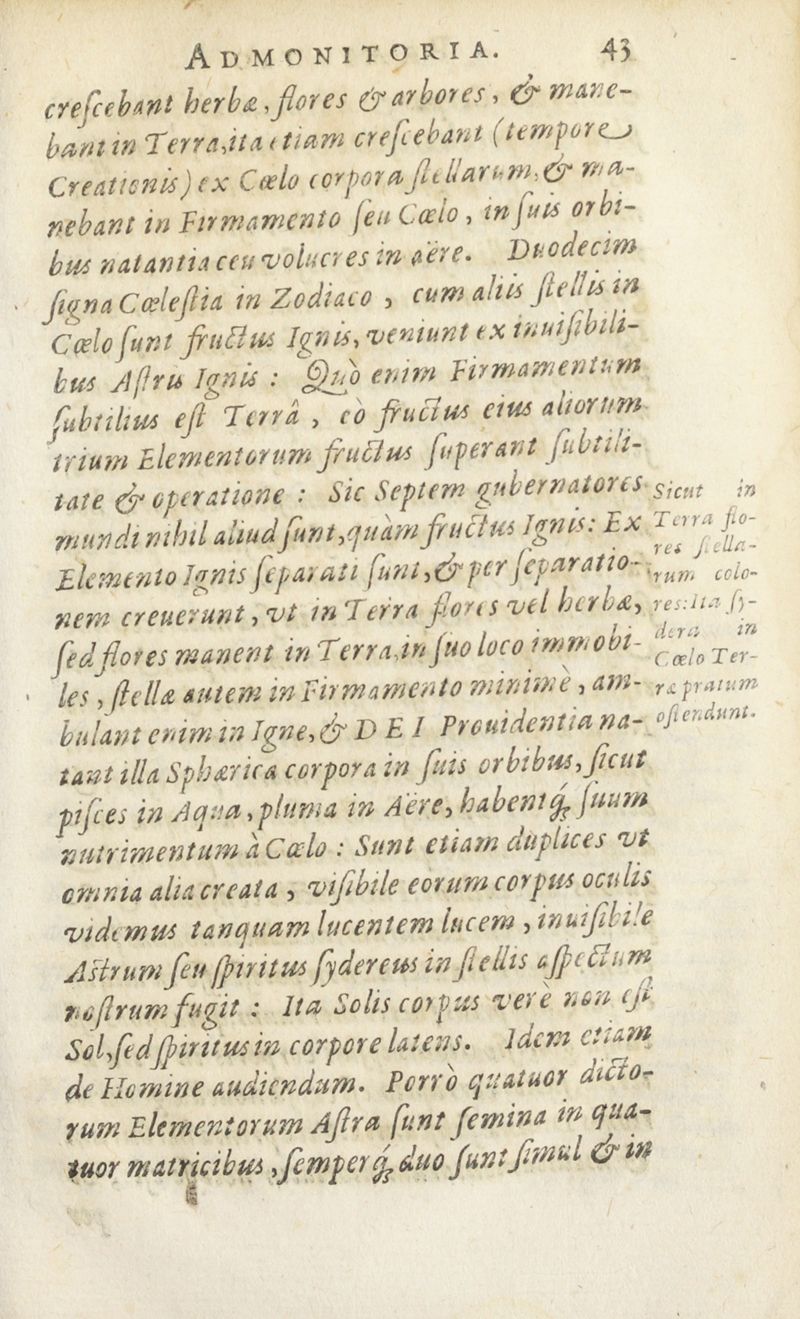 ADMONITORIA. 43
creſcebant herbæ, flores & arbores, & mane-
bant in Terra, ita etiam creſcebant (tempore
Creationis) ex Cœlo corpora ſtellarum, & ma-
nebant in Firmamento ſeu Cœlo, in ſuis orbi-
bus natantia ceu volucres in aëre. Duodecim
ſigna Cœleſtia in Zodiaco, cum aliis ſtellis in
Cœlo ſunt fructus Ignis, veniunt ex inuiſibili-
bus Aſtris Ignis: Quò enim Firmamentum
ſubtilius eſt Terrâ, eò fructus eius aliorum
trium Elementorum fructus ſuperant ſubtili-
tate & operatione: Sic Septem gubernatores
mundi nihil aliud ſunt, quàm fructus Ignis: Ex
Elemento Ignis ſeparati ſunt, & per ſeparatio-
nem creuerunt, vt in Terra flores vel herbæ,
ſed flores manent in Terra, in ſuo loco immobi-
les, ſtellæ autem in Firmamento minimè, am-
bulant enim in Igne, & DEI Prouidentia na-
tant illa Sphærica corpora in ſuis orbibus, ſicut
piſces in Aqua, pluma in Aëre, habentq́ꝫ ſuum
nutrimentum à Cœlo: Sunt etiam duplices vt
omnia alia creata, viſibile eorum corpus oculis
videmus tanquam lucentem lucem, inuiſibile
Aſtrum ſeu ſpiritus ſydereus in ſtellis aſpectum
noſtrum fugit: Ita Solis corpus verè non eſt
Sol, ſed ſpiritus in corpore latens. Idem etiam
de Homine audiendum. Porrò quatuor dicto-
rum Elementorum Aſtra ſunt ſemina in qua-
tuor matricibus, ſemperq́ꝫ duo ſunt ſimul & in
Sicut in
Terra flo-
res ſtella-
rum colo-
res: ita ſy-
dera in
Cœlo Ter-
ræ pratum
oſtendunt.